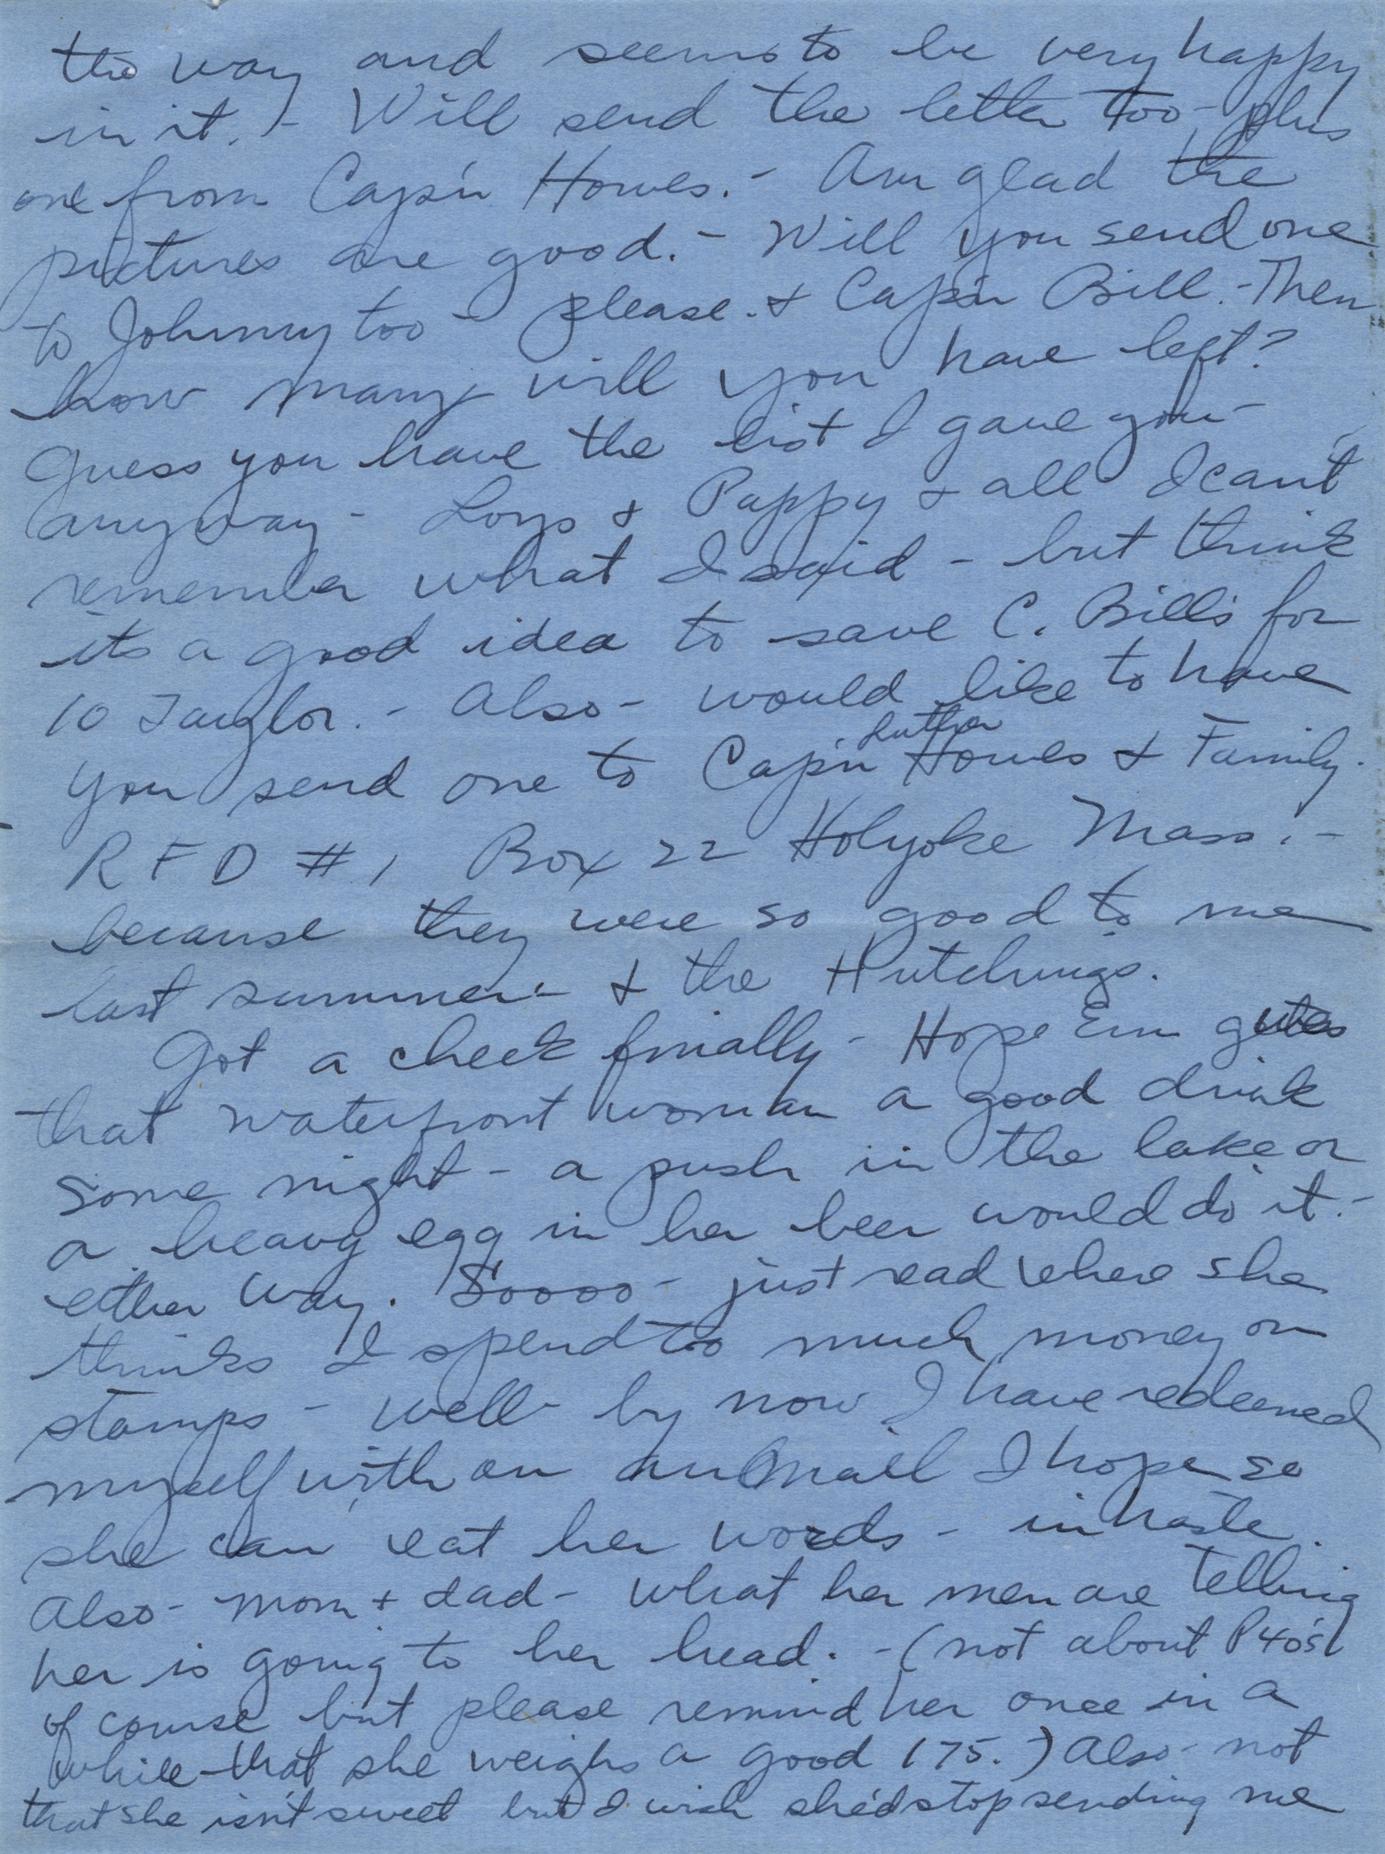 the way and seems to be very happy
in it. - Will send the letter too - plus
one from Cap'n Howes. - Am glad the
pictures are good. - Will you send one
to Johnny too - please. & Cap'n Bill. - Then
how many will you have left?
Guess you have the list I gave you -
anyway - Loys & Pappy & all I can't
remember what I said - but think
its a good idea to save C. Bill's for
10 Taylor. - Also - would like to have
you send one to Cap'n Luther Howes & Family.
R F D # 1 Box 22 Holyoke Mass. -
because they were so good to me
last summer - & the Hutchings.
Got a check finally - Hope Em gives
that waterfront woman a good drink
some night - a push in the lake or
a heavy egg in her beer would do it. -
either way. Soooo - just read where she
thinks I spend too much money on
stamps - well - by now I have redeemed
myself with an airmail I hope so
she can eat her words - in haste.
Also - Mom + dad - what her men are telling
her is going to her head. - (not about P40's
of course but please remind her once in a
while that she weighs a good 175.) Also - not
that she isn't sweet but I wish she'd stop sending me